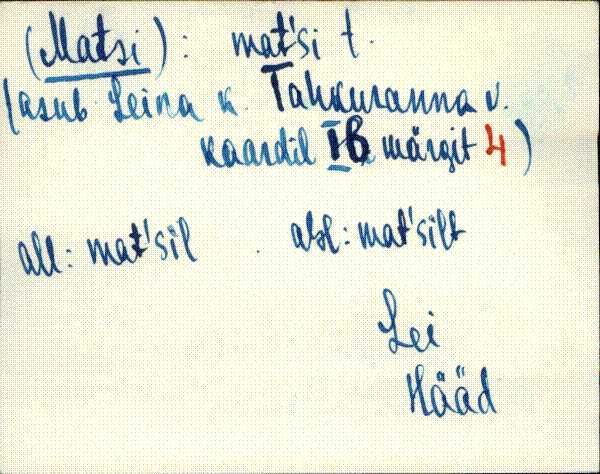 (Matsi): mat'si t.
(asub Leina k. Tahkuranna v.
kaardil IB märgit 4)
all: mat'sil . abl: mat'silt
Lei
Hääd